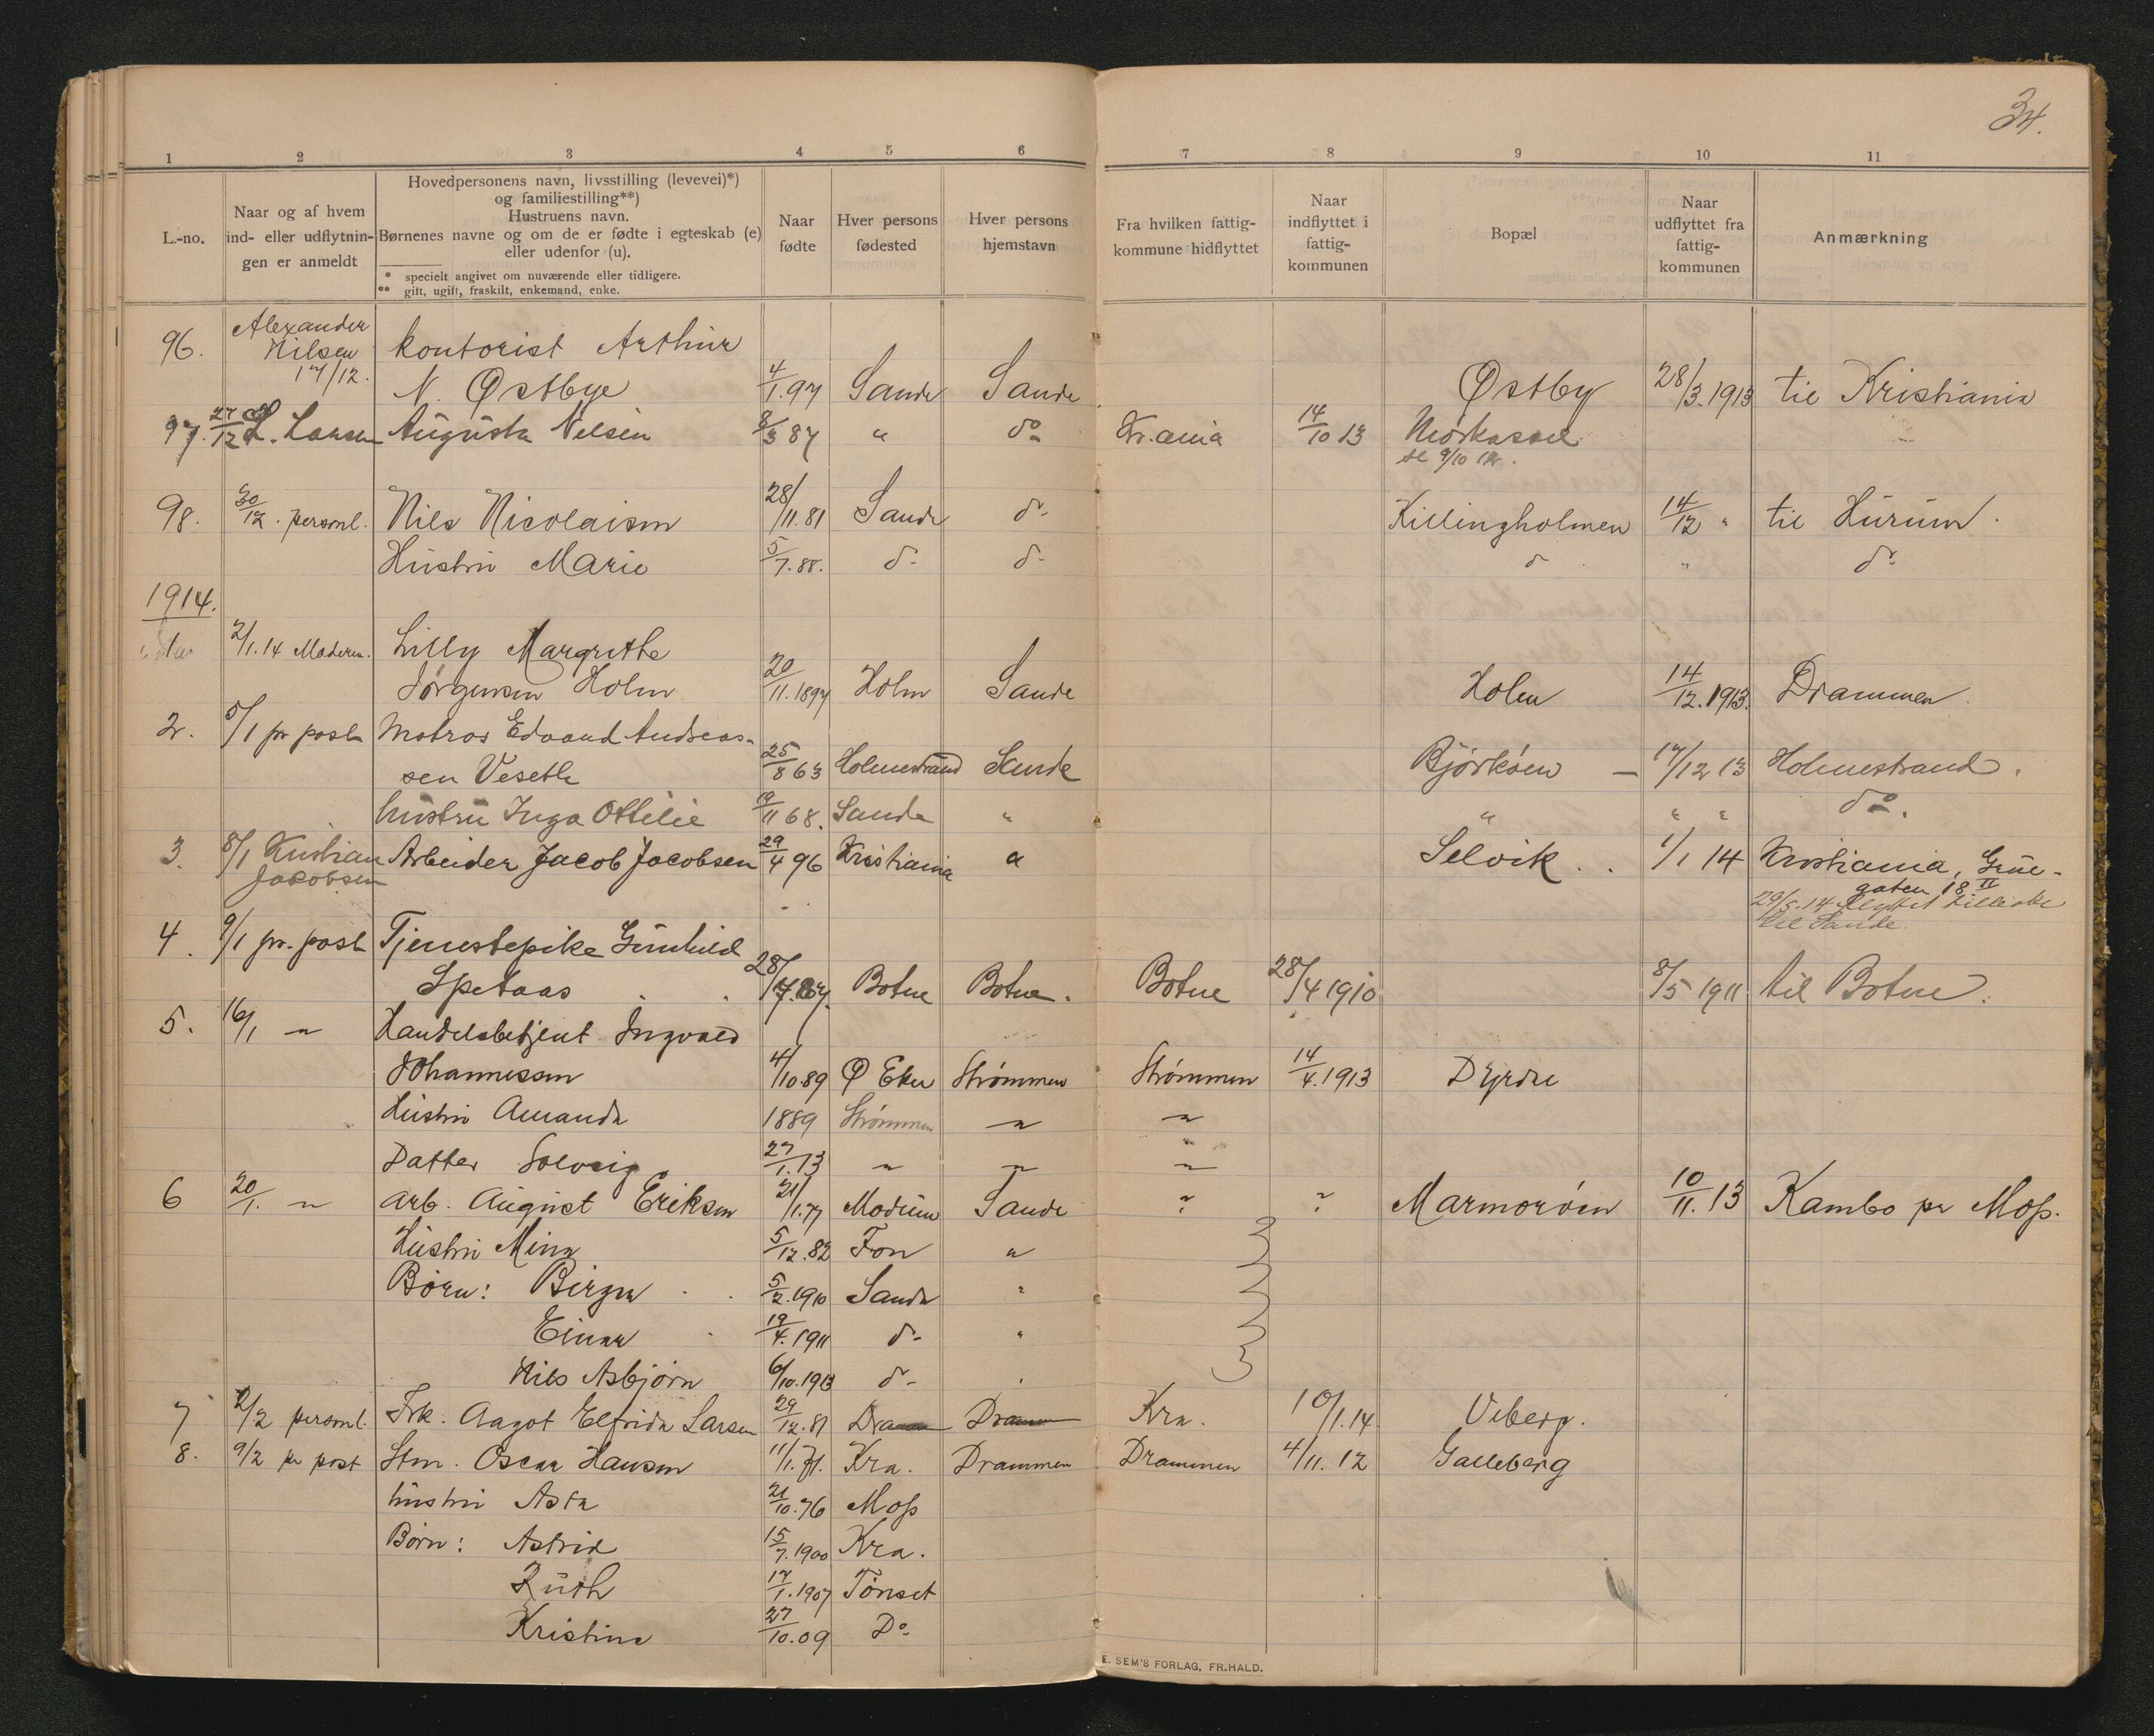 34.
1 2 3 4 5 6 7 8 9 10 11
L.-no.
Naar og af hvem
ind- eller udflytnin-
gen er anmeldt
Hovedpersonens navn, livsstilling (levevei)*)
og familiestilling**)
Hustruens navn.
Børnenes navne og om de er fødte i egteskab (e)
eller udenfor (u).
* specielt angivet om nuværende eller tidligere.
** gift, ugift, fraskilt, enkemand, enke.
Naar
fødte
Hver persons
fødested
Hver persons
hjemstavn
Fra hvilken fattig-
kommune hidflyttet
Naar
indflyttet i
fattig-
kommunen
Bopæl
Naar
udflyttet fra
fattig-
kommunen
Anmærkning
96. Alexander
Nilsen kontorist Arthur
17/12. N. Østbye 4/1.97 Sande Sande Østby 28/3.1913 til Kristiania
97. 27/12 L. Larsen Augusta Nelsen 8/3 87 " do Kr.ania 14/10 13
98. 30/12. personl. Nils Nicolaisen 28/11.81 Sande do Killingholmen 14/12 " til Hurum.
Hustru Marie 5/7.88. do do do " do
1914.
2/1.14 Moderen. Lilly Margrethe
Jørgensen Holm 20/11.1897 Holm Sande Holm 14/12.1913. Drammen
2. 5/1 pr post Matros Edvard Andreas-
sen Vesetle 25/8 63 Holmestrand Sande Bjørkøen — 17/12 13 Holmestrand.
hustru Inga Ottilie 19/11 68. Sande " " " " do.
3. 8/1 Kristian
Jacobsen Arbeider Jacob Jacobsen 29/4 96 Kristiania " Selvik . . 1/1 14 Kristiania, Grüne-
gaten 18 II
29/5.14 flyttet tilbake
til Sande.
4. 9/1 pr. post Tjenestepike Gunhild
Spetaas 28/7.87. Botne Botne. Botne 28/4 1910 8/5 1911 til Botne.
5. 16/1 " Handelsbetjent Ingvald
Johannessen 4/10.89 Ø Eker Strømmen Strømmen 14/4.1913 Dyrdre
Hustru Amanda 1889 Strømmen " "
Datter Solveig 27/1.13 " " "
6 20/1. " Arb. August Eriksen 21/1.77 Modum Sande ? ? Marmorøen 10/11.13 Kambo pr Moss.
Hustru Mina 5/12.82 Fon "
Børn: Birger . . 5/2.1910 Sande "
Einar 19/4.1911 do "
Nils Asbjørn 6/10.1913 do "
7 2/2 personl. Frk. Aagot Elfrida Larsen 29/12.81 Dramm Dramm Kra. 10/1.14. Veberg.
8. 9/2 pr post Stm. Oscar Hansen 11/1.71. Kra. Drammen Drammen 4/11.12 Galleberg
hustru Asta 21/10.76 Moss
Børn: Astrid 15/7.1900 Kra.
Ruth 17/1.1907 Tønset
Kristine 27/10.09 Do
E. SEM'S FORLAG, FR.HALD.